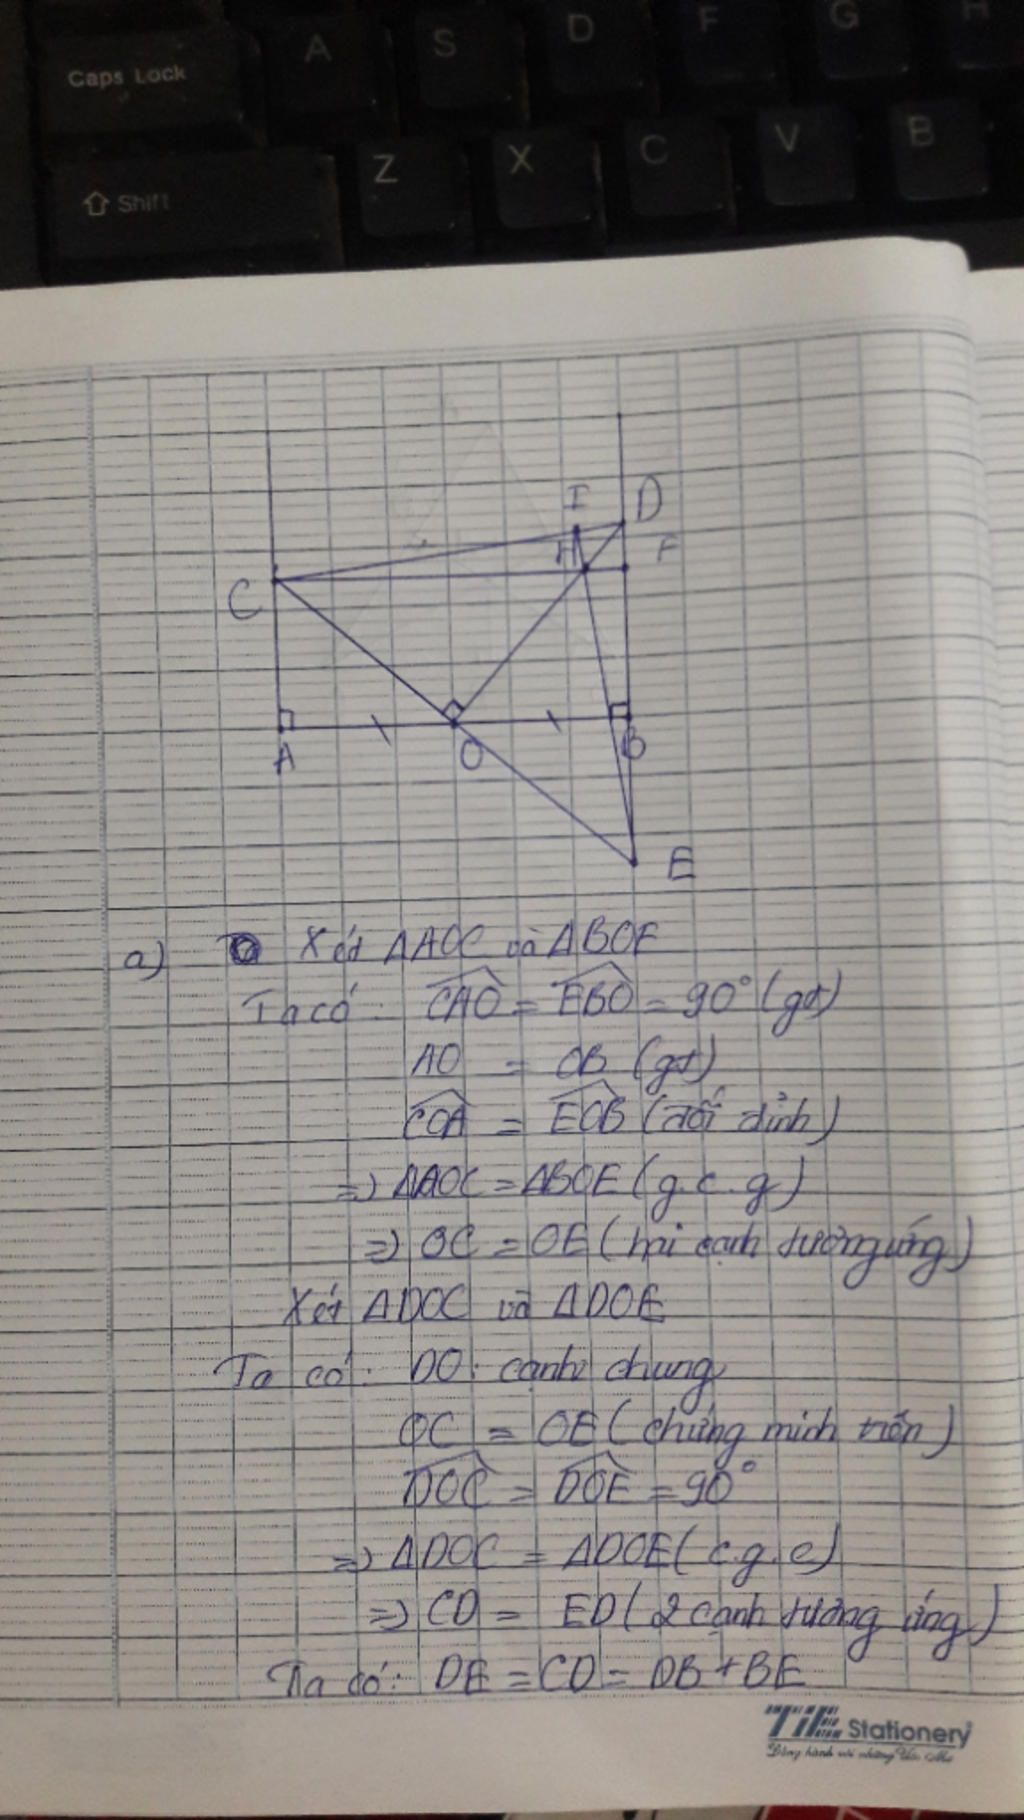 Caps Lock A S D F G H
Shift Z X C V B
I D
H F
C
A O B
E
a) Xét ΔAOC và ΔBOE
Ta có: CAO = EBO = 90° (gt)
AO = OB (gt)
COA = EOB (đối đỉnh)
=> ΔAOC = ΔBOE (g.c.g)
=> OC = OE (hai cạnh tương ứng)
Xét ΔDOC và ΔDOE
Ta có: DO: cạnh chung
OC = OE (chứng minh trên)
DOC = DOE = 90°
=> ΔDOC = ΔDOE (c.g.c)
=> CD = ED (2 cạnh tương ứng)
Ta có: DE = CD = DB + BE
TiE Stationery